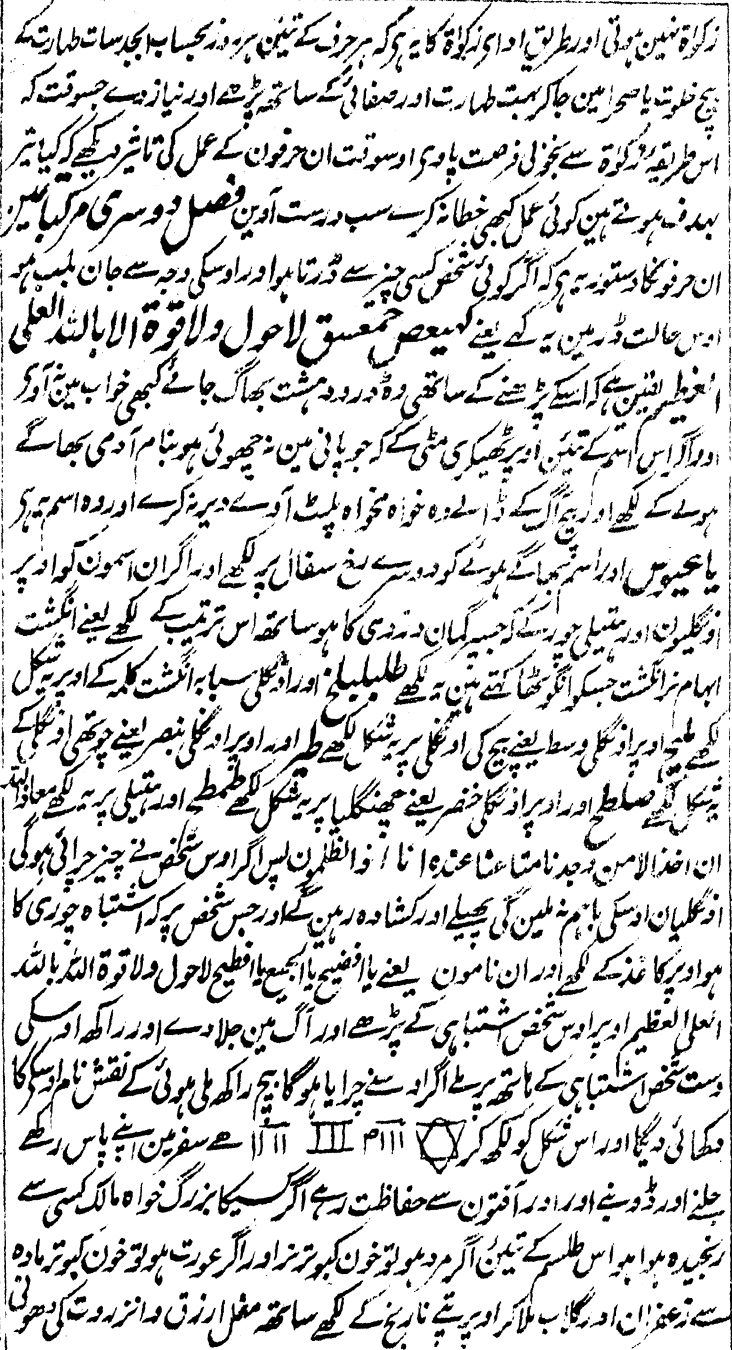 زکواة نہین ہوتی اور طریق ادای زکواة کا یہ ہی کہ ہر حرف کے تیئین ہر روز بحساب ابجد سات طہارت کے
بیچ خلوت یا صحرا مین جاکر بہت طہارت اور صفائی کے ساتھ پڑھے اور نیاز دے جسوقت کہ
اس طریقہ زکواة سے بخوبی فرصت پاوی اوسوقت ان حرفون کے عمل کی تاثیر دیکھے کہ کیا تیر
بہدف ہوتے ہین کوئی عمل کبھی خطا نہ کرے سب درست آوین فصل دوسری مرکبا تمین
ان حرفونکا دستور یہ ہی کہ اگر کوئی شخص کسی چیز سے ڈرتا ہو اور اوسکی وجہ سے جان بلب ہو
اوس حالت ڈر مین یہ کہے یعنے کہیعص حمعسق لاحول ولا قوة الا باللہ العلی
العظیم یقین ہے کہ اسکے پڑھنے کے ساتھی وہ ڈر و دہشت بھاگ جائے کبھی خواب مین نہ آوی
اور اگر اس اسم کے تیئن اوپر ٹھیکری مٹی کے کہ جو پانی مین نہ چھوئی ہو بنام آدمی بھاگے
ہوے کے لکھے اور بیچ آگ کے ڈالے وہ خواہ نخواہ پلٹ آوے دیر نہ کرے اور وہ اسم یہ ہی
یا عیوس اور اسم بھاگے ہوئے کو دوسرے رخ سفال پر لکھے اور اگر ان اسمون کو اوپر
اونگلیون اور ہتیلی چور کے کہ جسپہ گمان دزدی کا ہو ساتھ اس ترتیب کے لکھے یعنے انگشت
ابہام نر انگشت جسکو انگوٹھا کہتے ہین یہ لکھے طلبلبلخ اور اونگلی سبابہ انگشت کلمہ کے اوپر یہ شکل
لکھے طیح اوپر اونگلی وسطا یعنے بیچ کی اونگلی پر یہ شکل لکھے طیر اور اوپر اونگلی بنصر یعنے چوتھی اونگلی کے
یہ شکل لکھے سلطح اور اوپر اونگلی خنصر یعنے چھنگلیا پر یہ شکل لکھے طمطح اور ہتیلی پر یہ لکھے معاذ اللہ
ان اخذ الا من وجدنا متاعنا عندہ انا اذا لظلمون پس اگر اوس شخص نے چیز چرائی ہوگی
اونگلیان اوسکی باہم نہ ملین گی پھیلے اور کشادہ رہین گے اور جس شخص پر کہ اشتباہ چوری کا
ہو اوپر کاغذ کے لکھے اور ان نامون یعنے یا افضیح یا الجمیع یا افطیح لاحول ولا قوة اللہ باللہ
العلی العظیم اوپر اوس شخص اشتباہی کے پڑھے اور آگ مین جلا دے اور راکھ اوسکی
دست شخص اشتباہی کے ہاتھ پر ملے اگر اوسنے چرایا ہوگا بیچ راکھ ملی ہوئی کے نقش نام اوسکر کا
دکھائی دیگا اور اس شکل کو لکھ کر ✡ ااام ااا اااا ھے سفر مین اپنے پاس رکھے
جلنے اور ڈوبنے اور اور آفتون سے حفاظت رہے اگر کسیکا بزرگ خواہ مالک کسی سے
رنجیدہ ہوا ہو اس طلسم کے تیئن اگر مرد ہو تو خون کبوتر نر اور اگر عورت ہو تو خون کبوتر مادہ
سے زعفران اور گلاب ملا کر اوپر پتے نارنج کے لکھے ساتھ مقل ارزق و انزروت کی دھونی